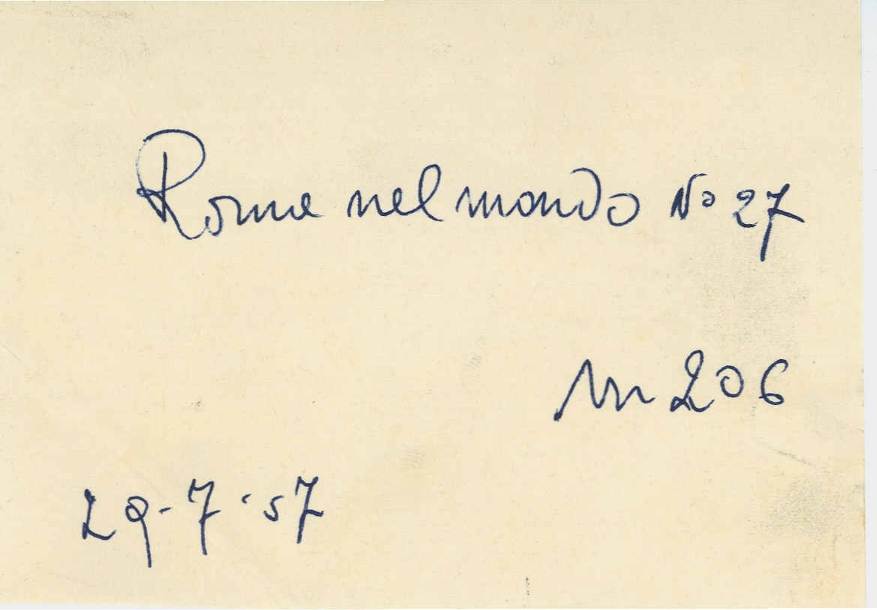 Roma nel mondo No 27
m 206
29-7-57